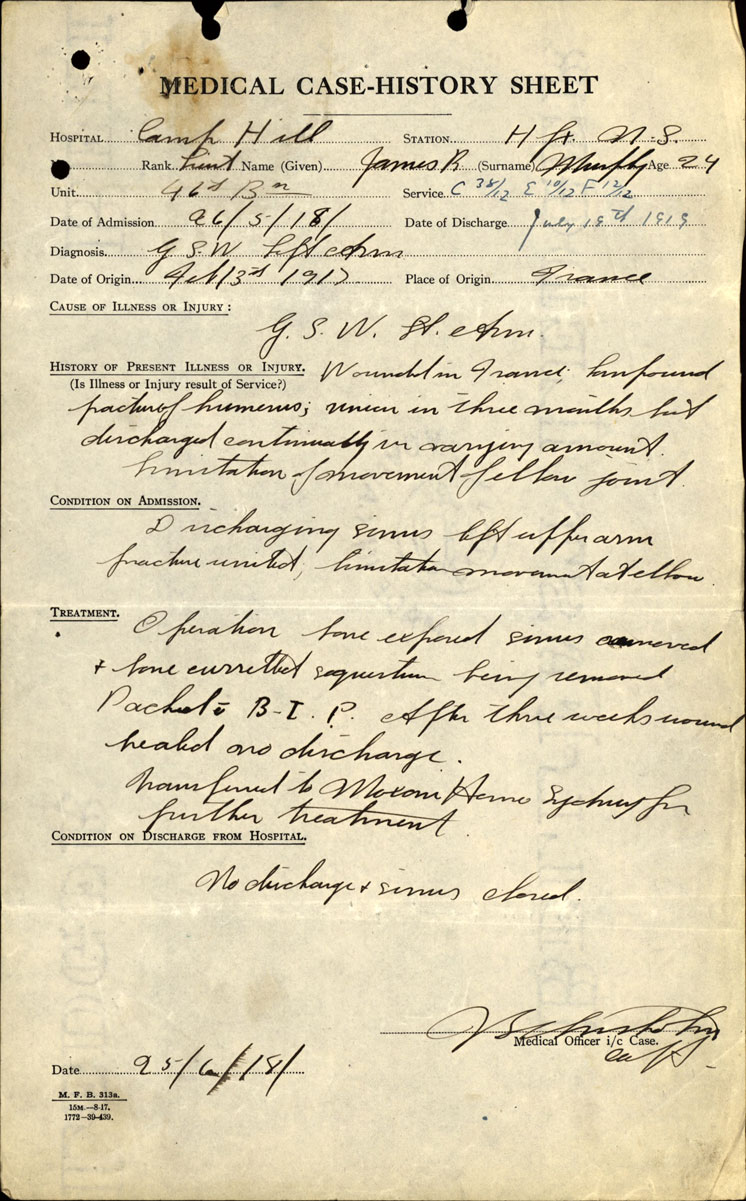 MEDICAL CASE-HISTORY SHEET
HOSPITAL Camp Hill STATION Hfx N.S.
Rank Lieut Name (Given) James R (Surname) Murphy Age 24
Unit 46th Bn Service C 38/12 E 10/12 F 12/12
Date of Admission 26/5/18/ Date of Discharge July 19th 1919
Diagnosis G.S.W. Left Arm
Date of Origin Feb 13th 1917 Place of Origin France
CAUSE OF ILLNESS OR INJURY:
G. S. W. Lt. Arm.
HISTORY OF PRESENT ILLNESS OR INJURY. Wounded in France, Compound
(Is Illness or Injury result of Service?)
fracture of humerus; union in three months but
discharged continually in varying amount.
limitation of movement of elbow joint.
CONDITION ON ADMISSION.
Discharging sinus left upper arm
fracture united, limitation movement at elbow.
TREATMENT. Operation bone exposed sinus removed
+ bone curretted sequestrum being removed
Packed c̄ B-I.P. After three weeks wound
healed no discharge.
Transferred to Moxom Home Sydney for
further treatment.
CONDITION ON DISCHARGE FROM HOSPITAL.
No discharge + sinus closed.
Medical Officer i/c Case.
Date 25/6/18/
M. F. B. 313a.
15M.—8-17.
1772—39-439.